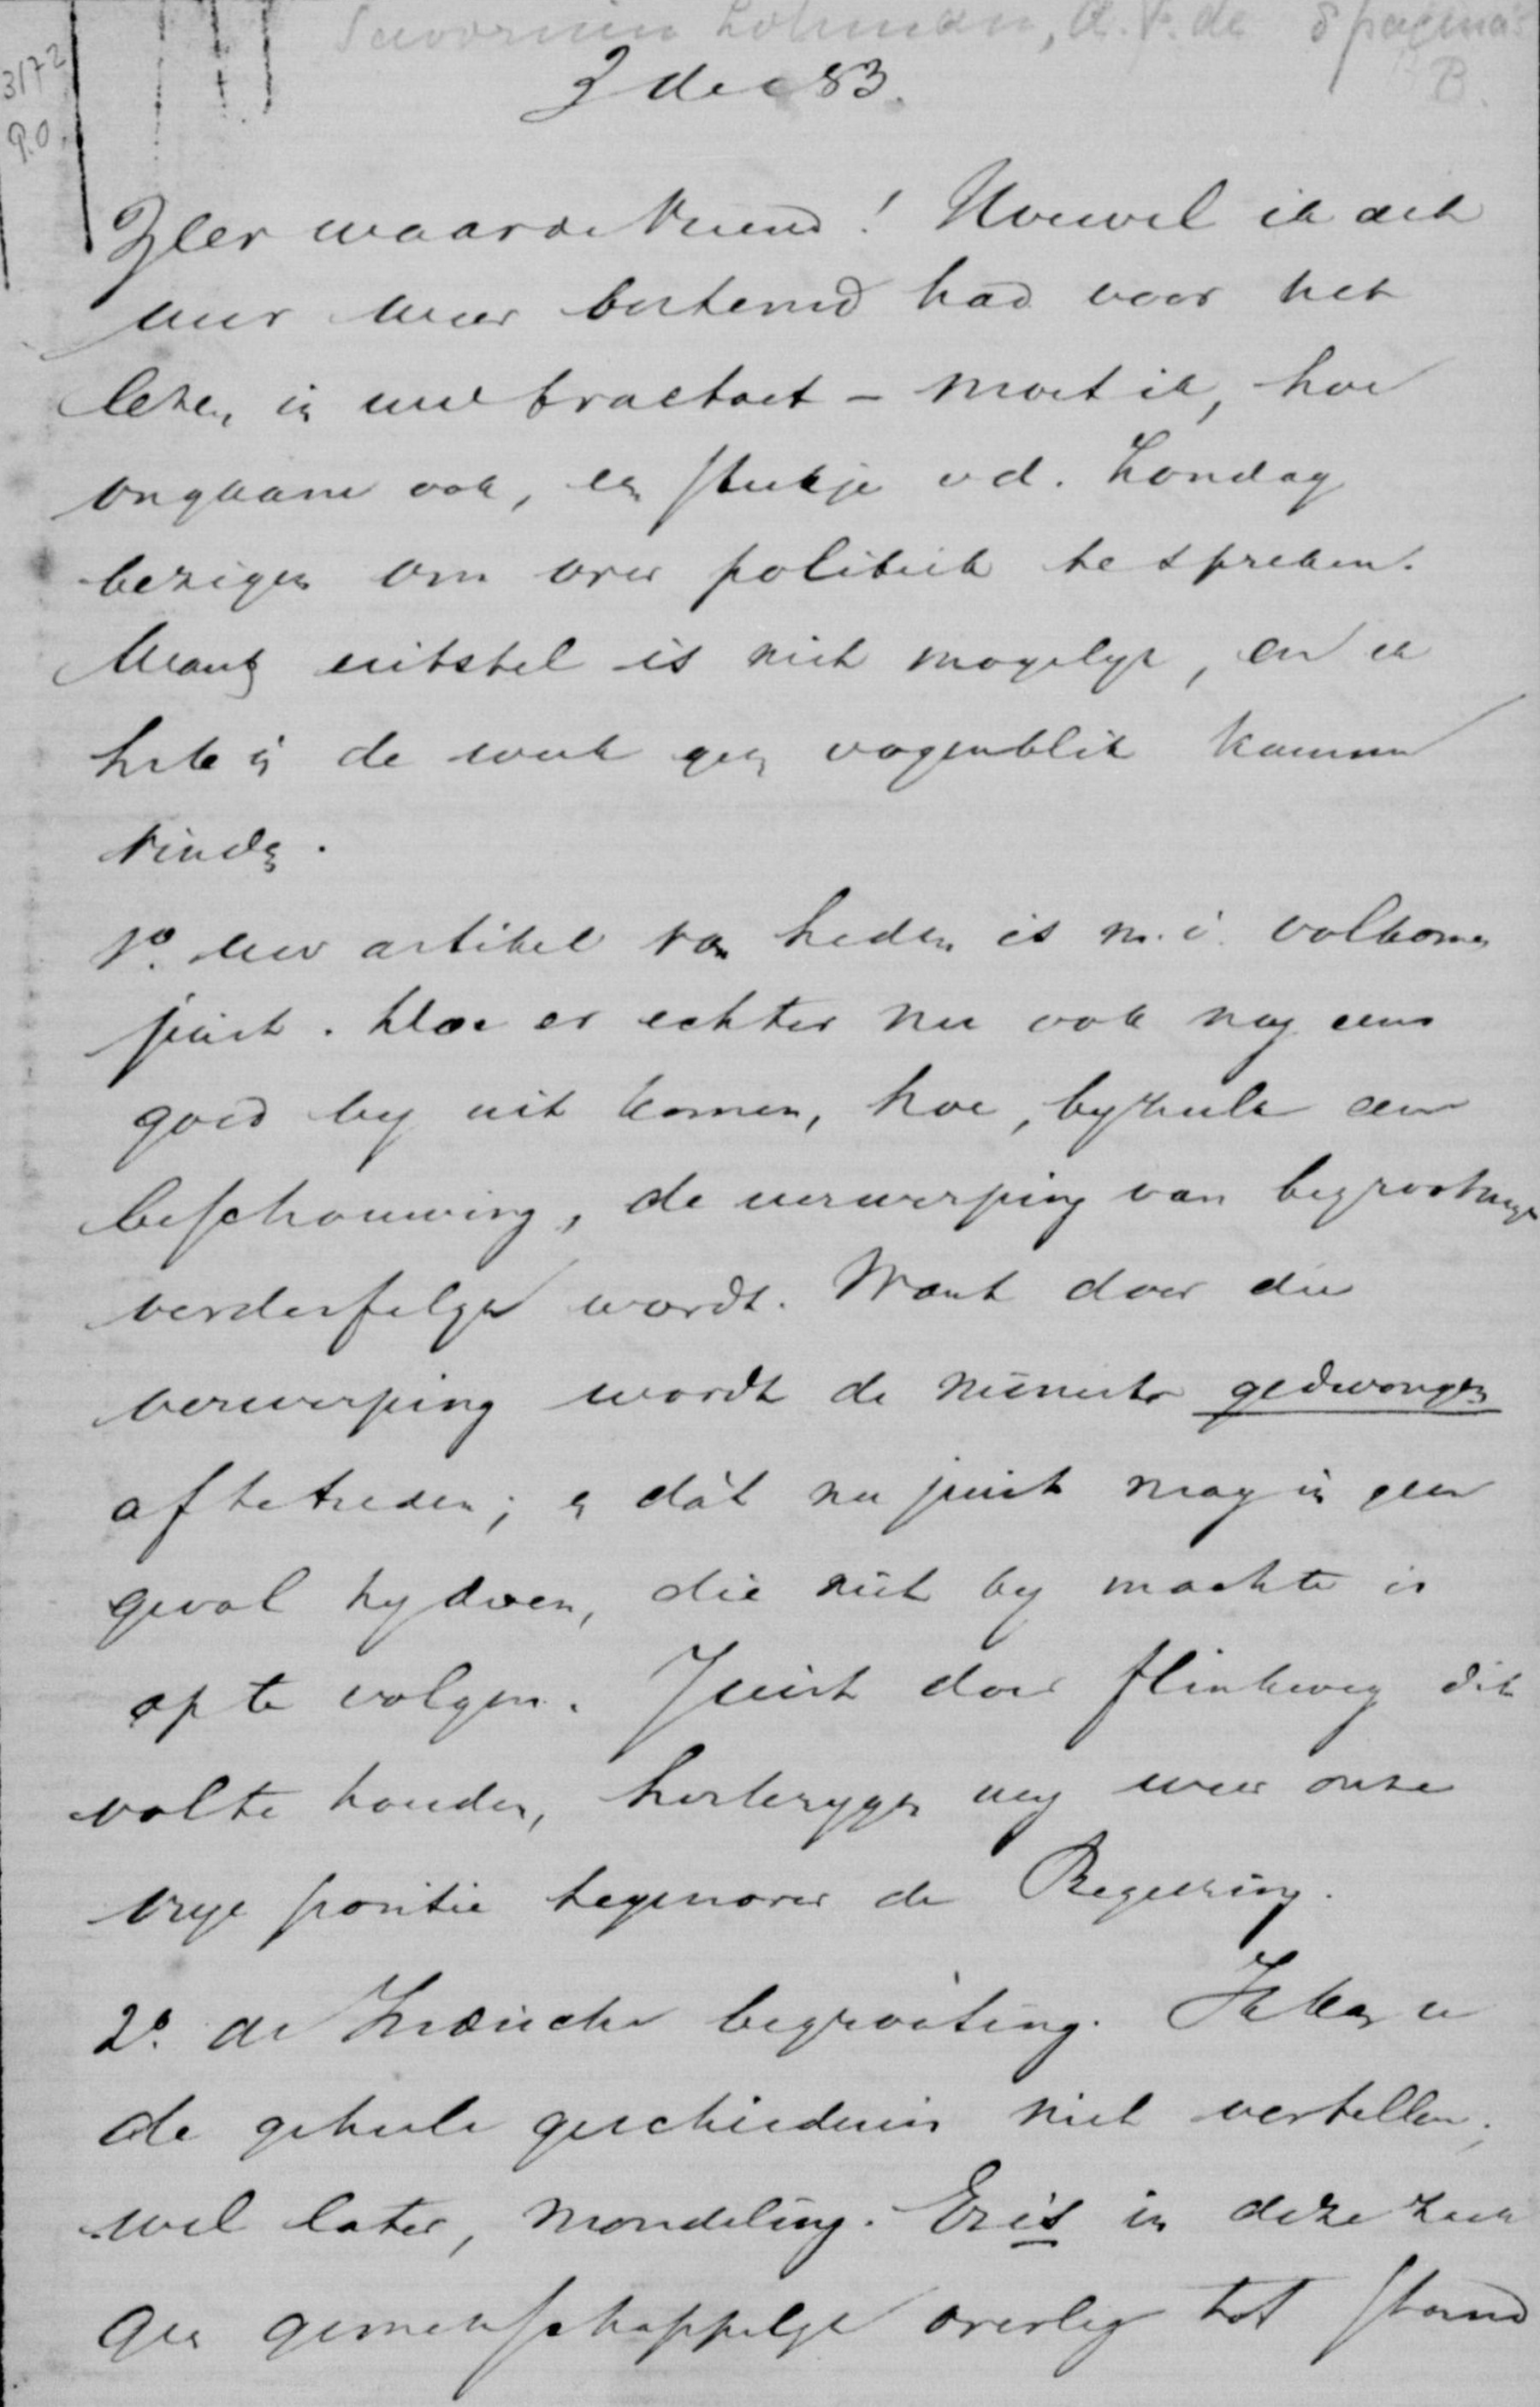 Savornin Lohman, A.F. de 8 pagina's
B.
3172
9.0.
2 dec 83.
Zeer waarde Vriend! Hoewel ik dit
uur weer bestemd had voor het
lezen in uw tractaat – moet ik, hoe
ongaarne ook, een stukje v.d. Zondag
bezigen om over politiek te spreken.
Want uitstel is niet mogelijk, en ik
heb in de week geen oogenblik kunnen
vinden.
1o. Uw artikel van heden is m.i. volkomen
juist. Doe er echter nu ook nog eens
goed bij uit komen, hoe, bij zulk een
beschouwing, de verwerping van begrootingen
verderfelijk wordt. Want door die
verwerping wordt de minister gedwongen
af te treden; en dàt nu juist mag in geen
geval hij doen, die niet bij machte is
op te volgen. Juist door flinkweg dit
vol te houden, herkrijgen wij weer onze
vrije positie tegenover de Regeering.
2o. de Indische begrooting. Ik kan u
de geheele geschiedenis niet vertellen;
wel later, mondeling. Er is in deze zaak
geen gemeenschappelijk overleg tot stand